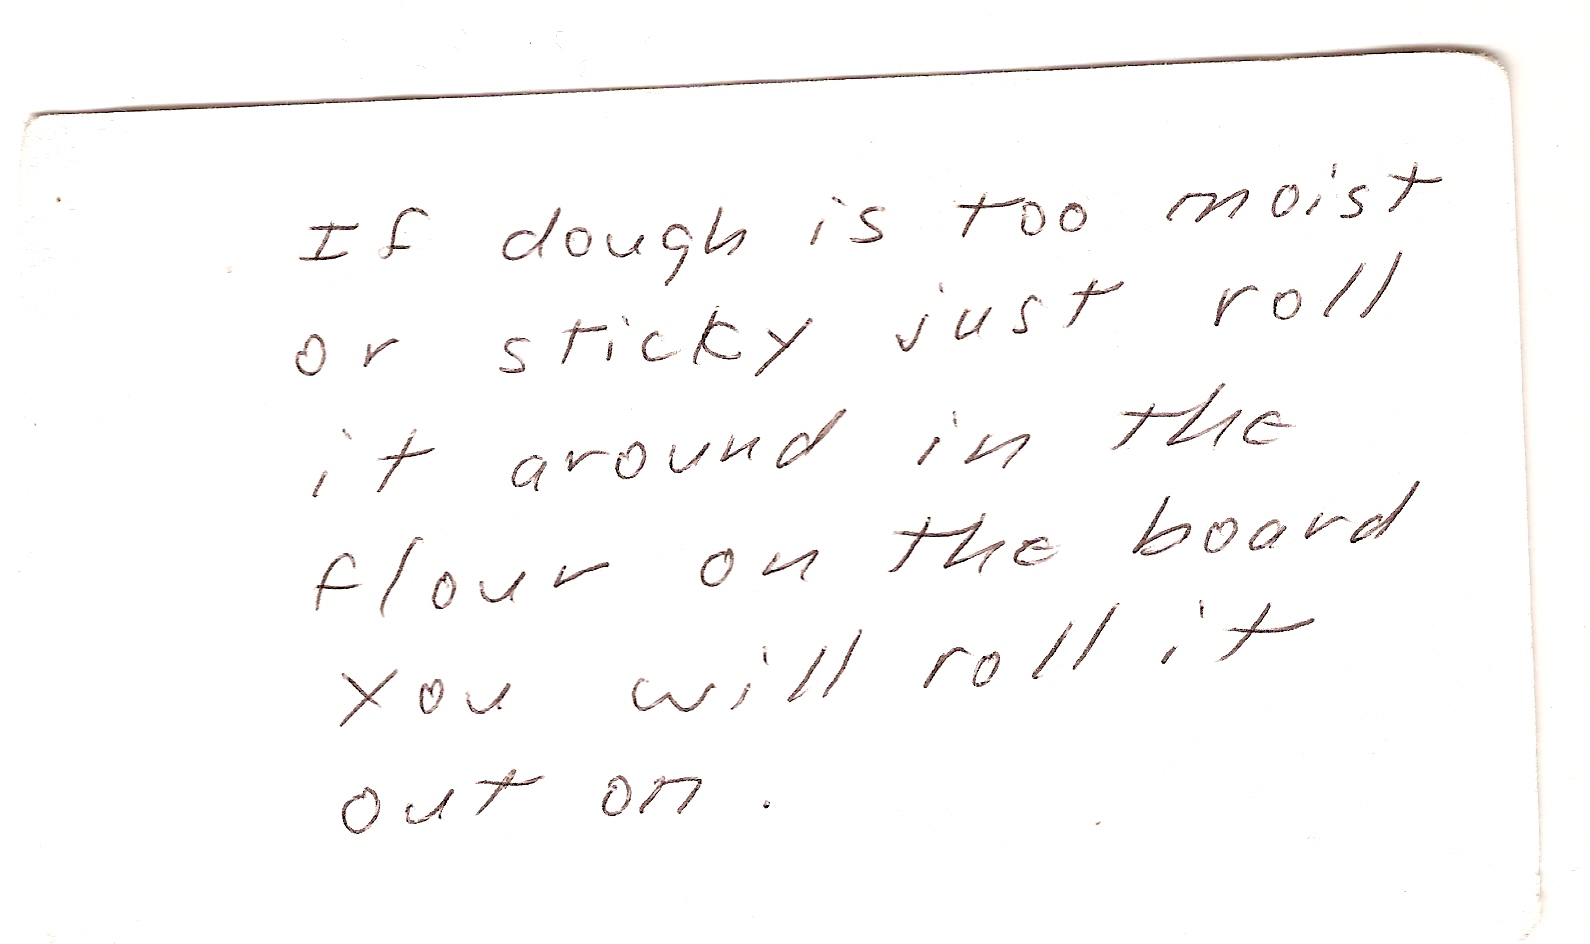 If dough is too moist
or sticky just roll
it around in the
flour on the board
You will roll it
out on.